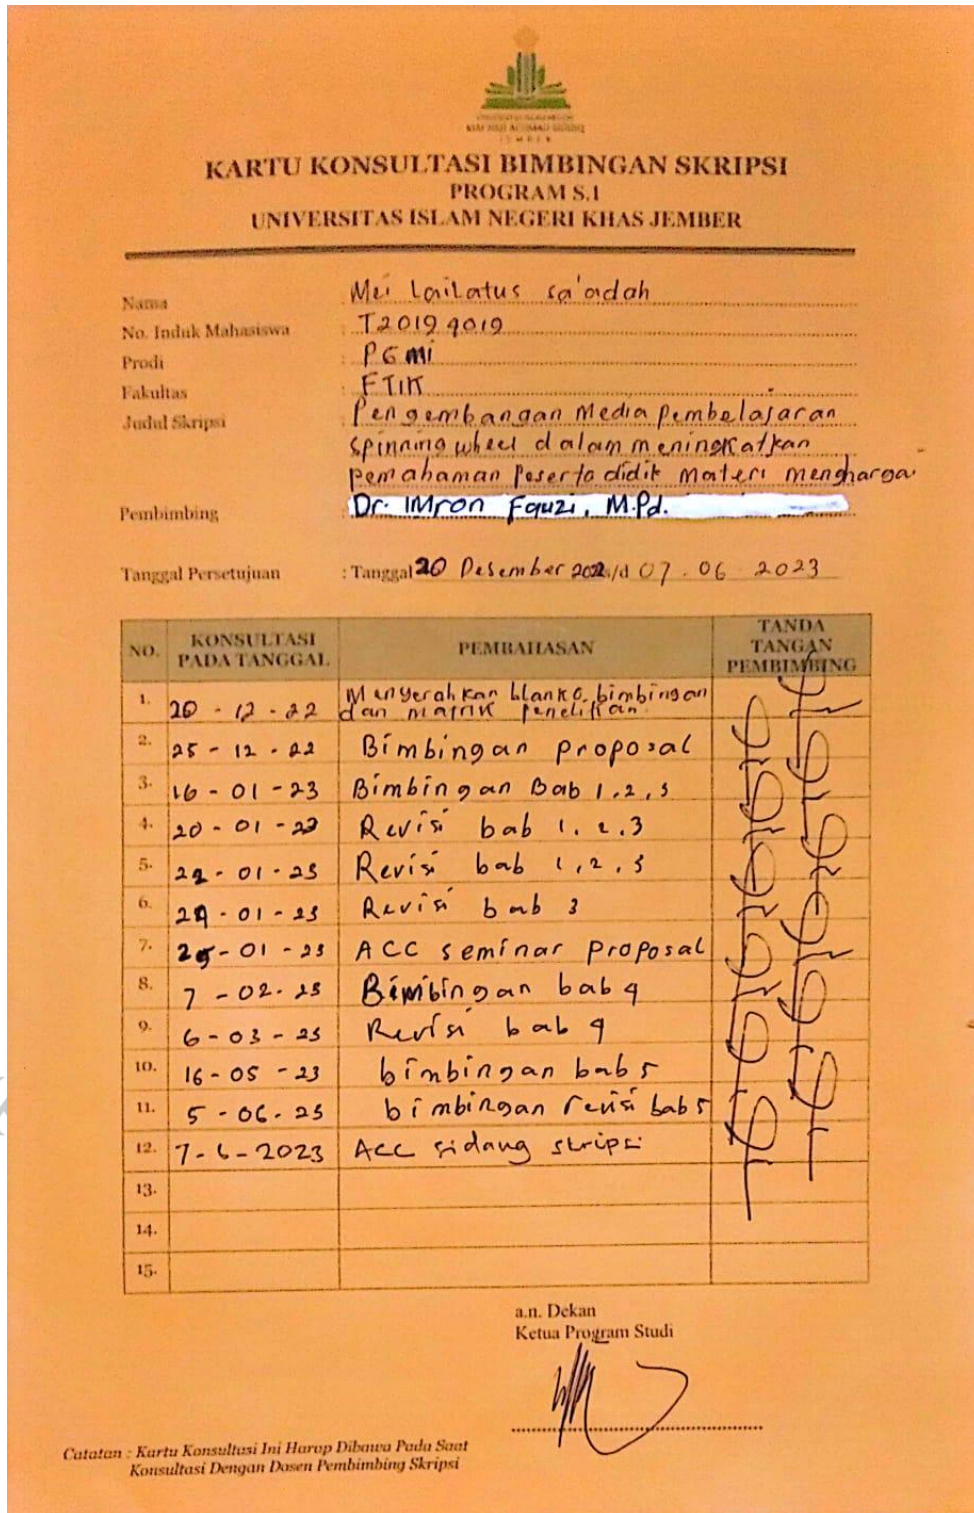 UNIVERSITAS ISLAM NEGERI
KIAI HAJI ACHMAD SIDDIQ
JEMBER
KARTU KONSULTASI BIMBINGAN SKRIPSI
PROGRAM S.1
UNIVERSITAS ISLAM NEGERI KHAS JEMBER
Nama : Mei Lailatus sa'adah
No. Induk Mahasiswa : T20194019
Prodi : PGMI
Fakultas : FTIK
Judul Skripsi : Pengembangan Media pembelajaran
spinning wheel dalam meningkatkan
pemahaman Peserta didik Materi menghargai
Pembimbing : Dr. IMron Fauzi, M.Pd.
Tanggal Persetujuan : Tanggal 20 Desember 2022 s/d 07. 06 2023
NO. KONSULTASI PADA TANGGAL PEMBAHASAN TANDA TANGAN PEMBIMBING
1. 20 - 12 - 22 Menyerahkan blanko bimbingan
dan matrik penelitian
2. 25 - 12 - 22 Bimbingan proposal
3. 16 - 01 - 23 Bimbingan Bab 1, 2, 3
4. 20 - 01 - 23 Revisi bab 1, 2, 3
5. 22 - 01 - 23 Revisi bab 1, 2, 3
6. 24 - 01 - 23 Revisi bab 3
7. 25 - 01 - 23 ACC seminar proposal
8. 7 - 02 - 23 Bimbingan bab 4
9. 6 - 03 - 23 Revisi bab 4
10. 16 - 05 - 23 bimbingan bab 5
11. 5 - 06 - 23 bimbingan revisi bab 5
12. 7 - 6 - 2023 ACC sidang skripsi
13.
14.
15.
a.n. Dekan
Ketua Program Studi
Catatan : Kartu Konsultasi Ini Harap Dibawa Pada Saat
Konsultasi Dengan Dosen Pembimbing Skripsi